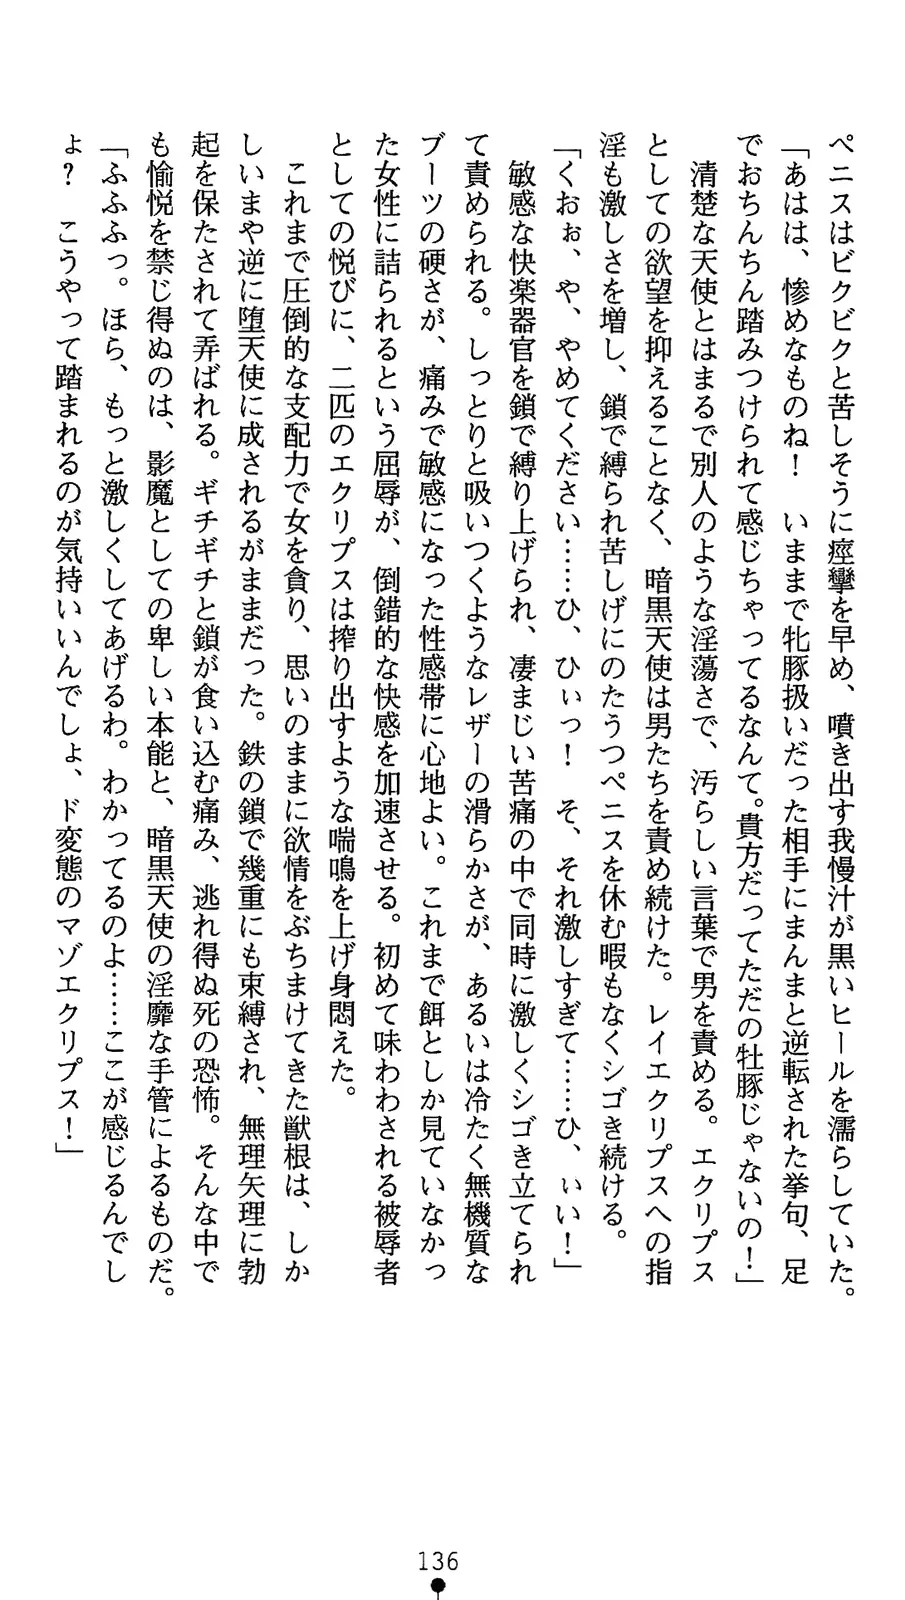 ペニスはビクビクと苦しそうに痙攣を早め、噴き出す我慢汁が黒いヒールを濡らしていた。
「あはは、惨めなものね！　いままで牝豚扱いだった相手にまんまと逆転された挙句、足
でおちんちん踏みつけられて感じちゃってるなんて。貴方だってただの牡豚じゃないの！」
　清楚な天使とはまるで別人のような淫蕩さで、汚らしい言葉で男を責める。エクリプス
としての欲望を抑えることなく、暗黒天使は男たちを責め続けた。レイエクリプスへの指
淫も激しさを増し、鎖で縛られ苦しげにのたうつペニスを休む暇もなくシゴき続ける。
「くおぉ、や、やめてくださいl……ひ、ひぃっ！　そ、それ激しすぎて……ひ、ぃい！」
　敏感な快楽器官を鎖で縛り上げられ、凄まじい苦痛の中で同時に激しくシゴき立てられ
て責められる。しっとりと吸いつくようなレザーの滑らかさが、あるいは冷たく無機質な
ブーツの硬さが、痛みで敏感になった性感帯に心地よい。これまで餌としか見ていなかっ
た女性に詰られるという屈辱が、倒錯的な快感を加速させる。初めて味わわされる被辱者
としての悦びに、二匹のエクリプスは搾り出すような喘鳴を上げ身悶えた。
　これまで圧倒的な支配力で女を貪り、思いのままに欲情をぶちまけてきた獣根は、しか
しいまや逆に堕天使に成されるがままだった。鉄の鎖で幾重にも束縛され、無理矢理に勃
起を保たされて弄ばれる。ギチギチと鎖が食い込む痛み、逃れ得ぬ死の恐怖。そんな中で
も愉悦を禁じ得ぬのは、影魔としての卑しい本能と、暗黒天使の淫靡な手管によるものだ。
「ふふふっ。ほら、もっと激しくしてあげるわ。わかってるのよ……ここが感じるんでし
ょ？　こうやって踏まれるのが気持いいんでしょ、ド変態のマゾエクリプス！」
136